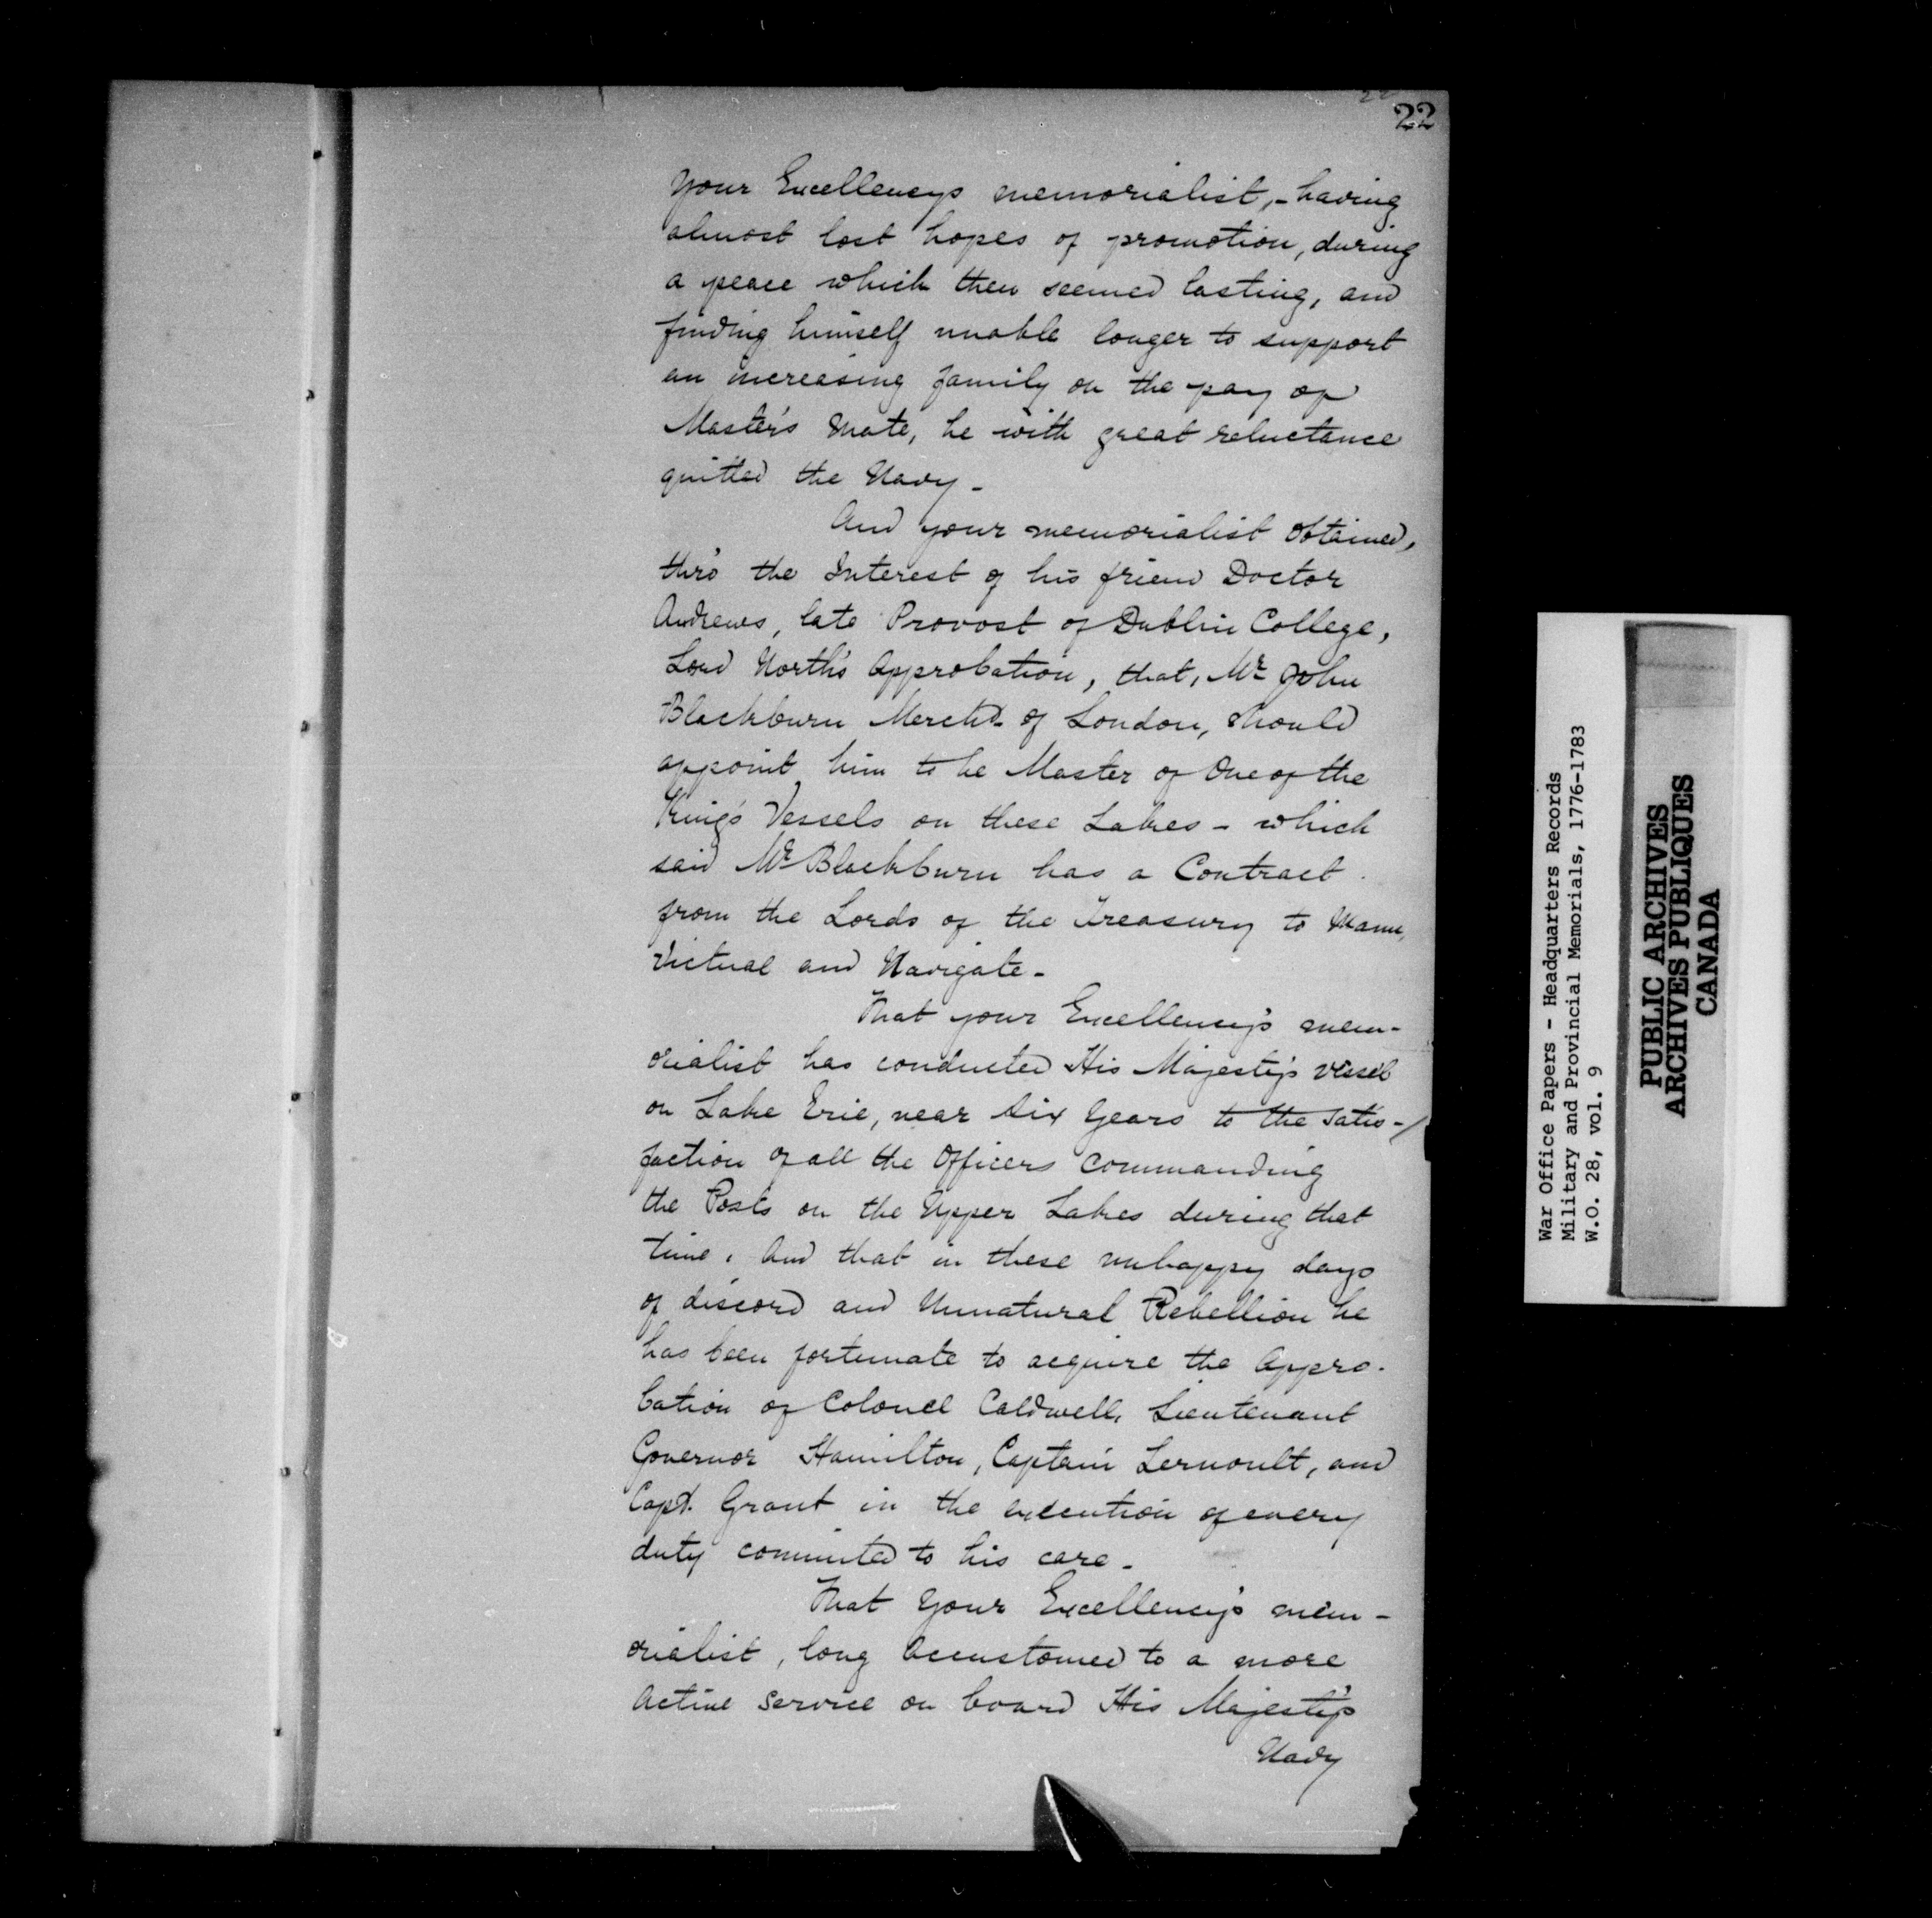 22
22
Your Excellencys memorialist, - having
almost lost hopes of promotion, during
a peace which then seemed lasting, and
finding himself unable longer to support
an increasing family on the pay of
Master's Mate, he with great reluctance
quitted the Navy -
And your memorialist obtained,
thro' the Interest of his friend Doctor
Andrews, late Provost of Dublin College,
Lord North's Approbation, that, Mr John
Blackburn Mercht of London, should
appoint him to be Master of One of the
King's Vessels on these Lakes - which
said Mr Blackburn has a Contract
from the Lords of the Treasury to Mann,
Victual and Navigate -
That your Excellency's mem-
orialist has conducted His Majesty's vessel
on Lake Erie, near Six Years to the satis-
faction of all the Officers commanding
the Posts on the Upper Lakes during that
time, And that in these unhappy days
of discord and Unnatural Rebellion he
has been fortunate to acquire the Appro-
bation of Colonel Caldwell, Lieutenant
Governor Hamilton, Captain Lernoult, and
Capt. Grant in the execution of every
duty committed to his care -
That Your Excellency's mem-
orialist, long Accustomed to a more
Active Service on board His Majesty's
Navy
War Office Papers - Headquarters Records
Military and Provincial Memorials, 1776-1783
W.O. 28, vol. 9
PUBLIC ARCHIVES
ARCHIVES PUBLIQUES
CANADA